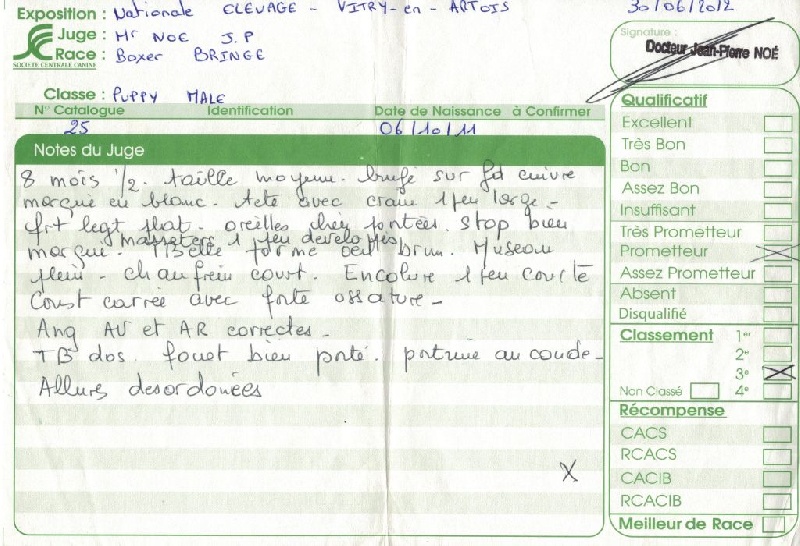 Exposition : Nationale ELEVAGE - VITRY-en-ARTOIS 30/06/2012
Juge : Mr NOE J.P
Race : Boxer BRINGE
SOCIETE CENTRALE CANINE
Classe : PUPPY MALE
N° Catalogue Identification Date de Naissance à Confirmer
25 06/10/11
Notes du Juge
8 mois 1/2. taille moyenne. bringé sur fd cuivre
marqué en blanc. tête avec crane 1 peu large -
frt legt plat. oreilles bien portées. Stop bien
masseters 1 peu developpés
marqué. TBelle forme oeil brun. Museau
plein. chanfrein court. Encolure 1 peu courte
Const carrée avec forte ossature -
Ang AV et AR correctes -
TB dos. fouet bien porté. poitrine au coude -
Allures desordonées
X
Signature :
Docteur Jean-Pierre NOÉ
Qualificatif
Excellent
Très Bon
Bon
Assez Bon
Insuffisant
Très Prometteur
Prometteur
Assez Prometteur
Absent
Disqualifié
Classement 1er
2e
3e
Non Classé 4e
Récompense
CACS
RCACS
CACIB
RCACIB
Meilleur de Race